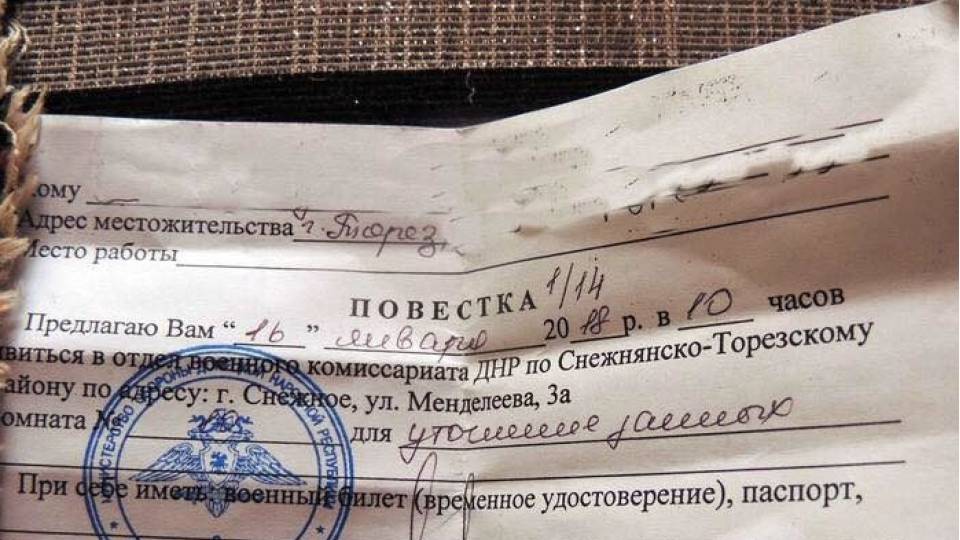 кому
Адрес местожительства г. Торез
Место работы
ПОВЕСТКА 1/14
Предлагаю Вам “16” января 2018 р. в 10 часов
явиться в отдел военного комиссариата ДНР по Снежнянско-Торезскому
району по адресу: г. Снежное, ул. Менделеева, 3а
комната № для уточнение данных
При себе иметь: военный билет (временное удостоверение), паспорт,
МИНИСТЕРСТВО ОБОРОНЫ НАРОДНОЙ РЕСПУБЛИКИ